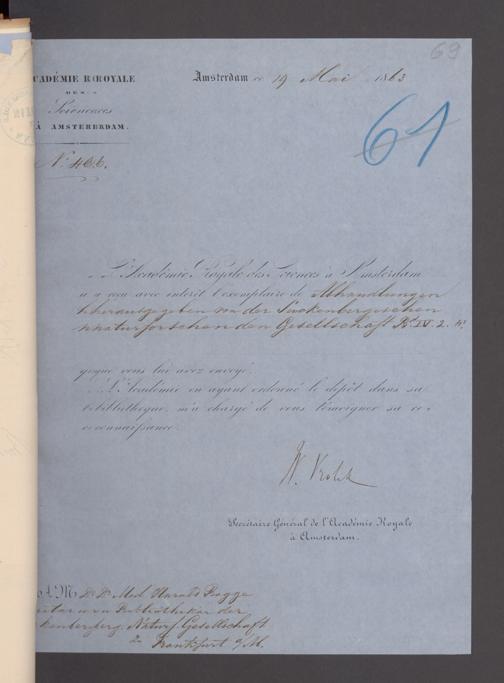 69
CADÉMIE ROYALE
DES
Sciences
À AMSTERDAM.
Amsterdam ce 19 Mai 1863
61
No. 466.
L'Académie Royale des Sciences à Amsterdam
a reçu avec intérêt l'exemplaire de Abhandlungen
herausgegeben von der Senckenbergischen
naturforschenden Gesellschaft Bd IV. 2.
que vous lui avez envoyé.
L'Académie en ayant ordonné le dépôt dans sa
bibliothèque, m'a chargé de vous témoigner sa re-
connaissance.
W. Vrolik
Secrétaire Général de l'Académie Royale
à Amsterdam.
A M Dr Med Harald
Bibliothekar der
kenberg. Naturf. Gesellschaft
zu Frankfurt a/M.